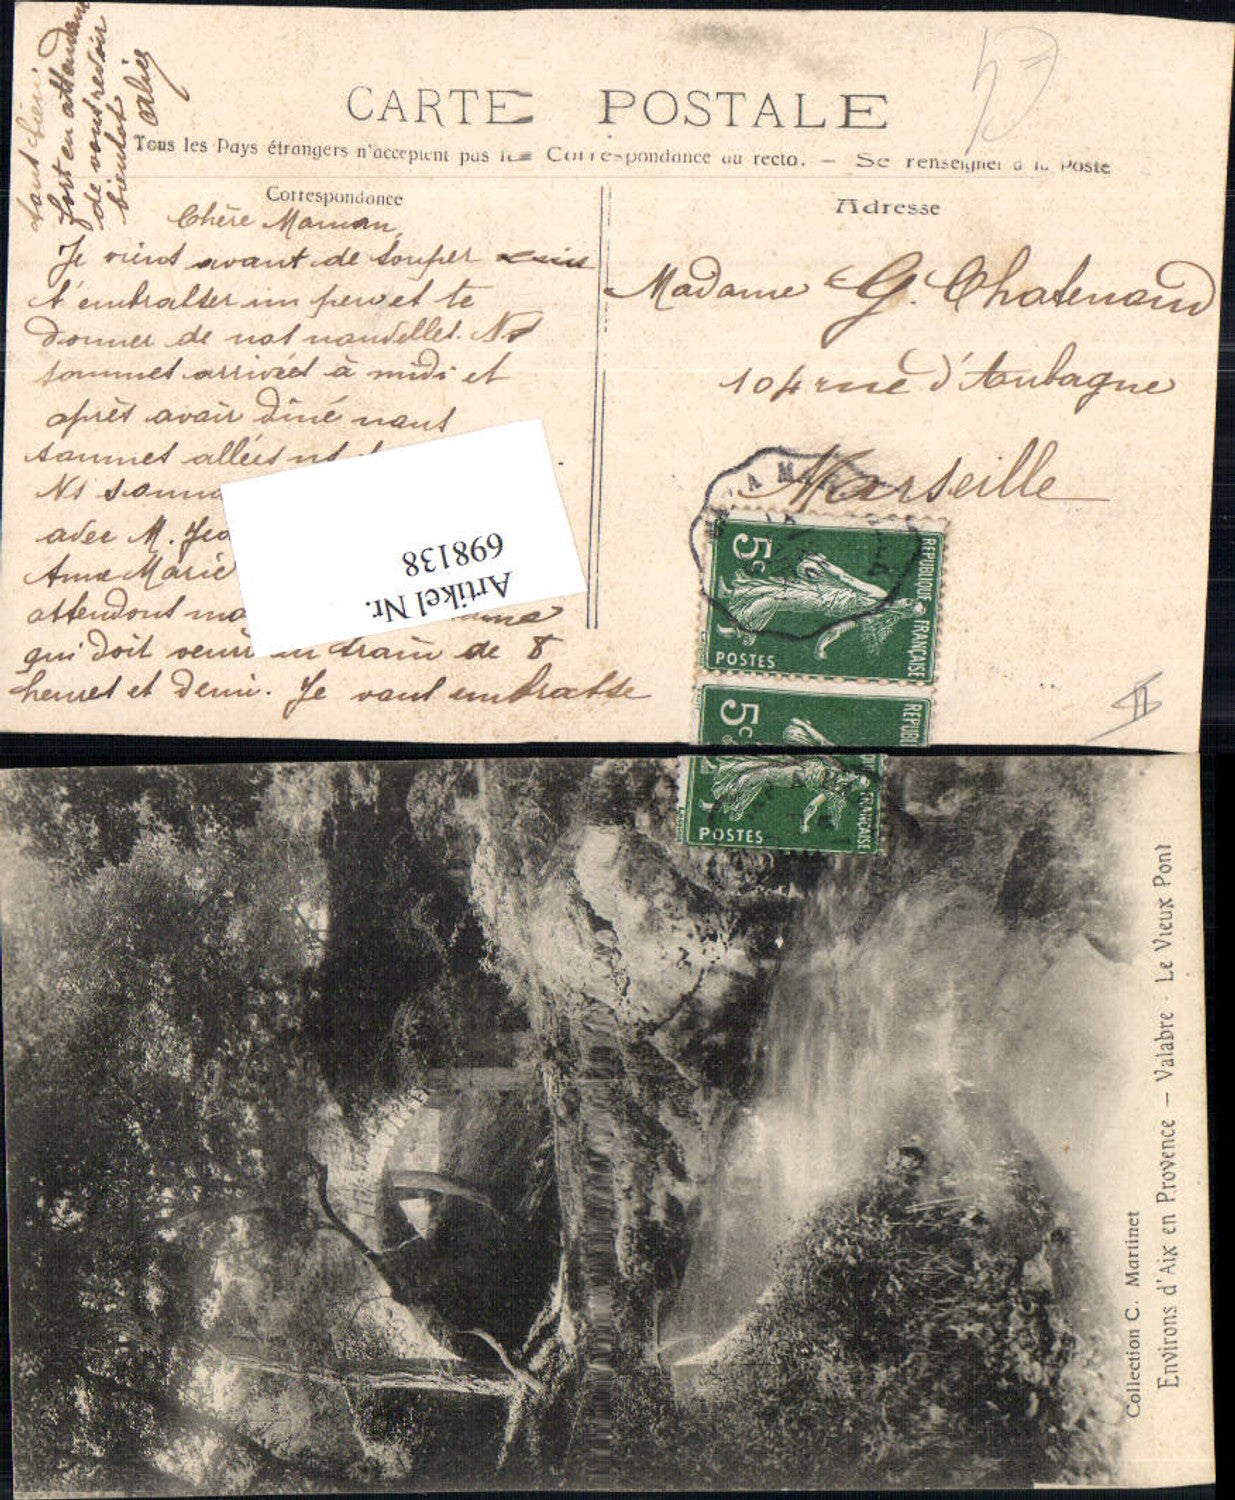 CARTE POSTALE
Tous les Pays étrangers n'acceptent pas la Correspondance au recto. — Se renseigner à la Poste
Correspondance
Chère Maman,
Je viens avant de souper
t'embrasser un peu et te
donner de nos nouvelles. Ns
sommes arrivées à midi et
après avoir dîné nous
sommes allées ns
Ns somm
avec M. Jea
Anne Marie
attendons ma
qui doit venir au train de 8
heures et demi. Je vous embrasse
tous bien
fort en attendant
de vous revoir
bientôt
Adresse
Madame G. Chatenaud
104 rue d'Aubagne
Marseille
REPUBLIQUE FRANÇAISE
5c
POSTES
REPUBL
5c
FRANÇAISE
POSTES
Artikel Nr.
698138
Collection C. Martinet
Environs d'Aix en Provence — Valabre - Le Vieux Pont